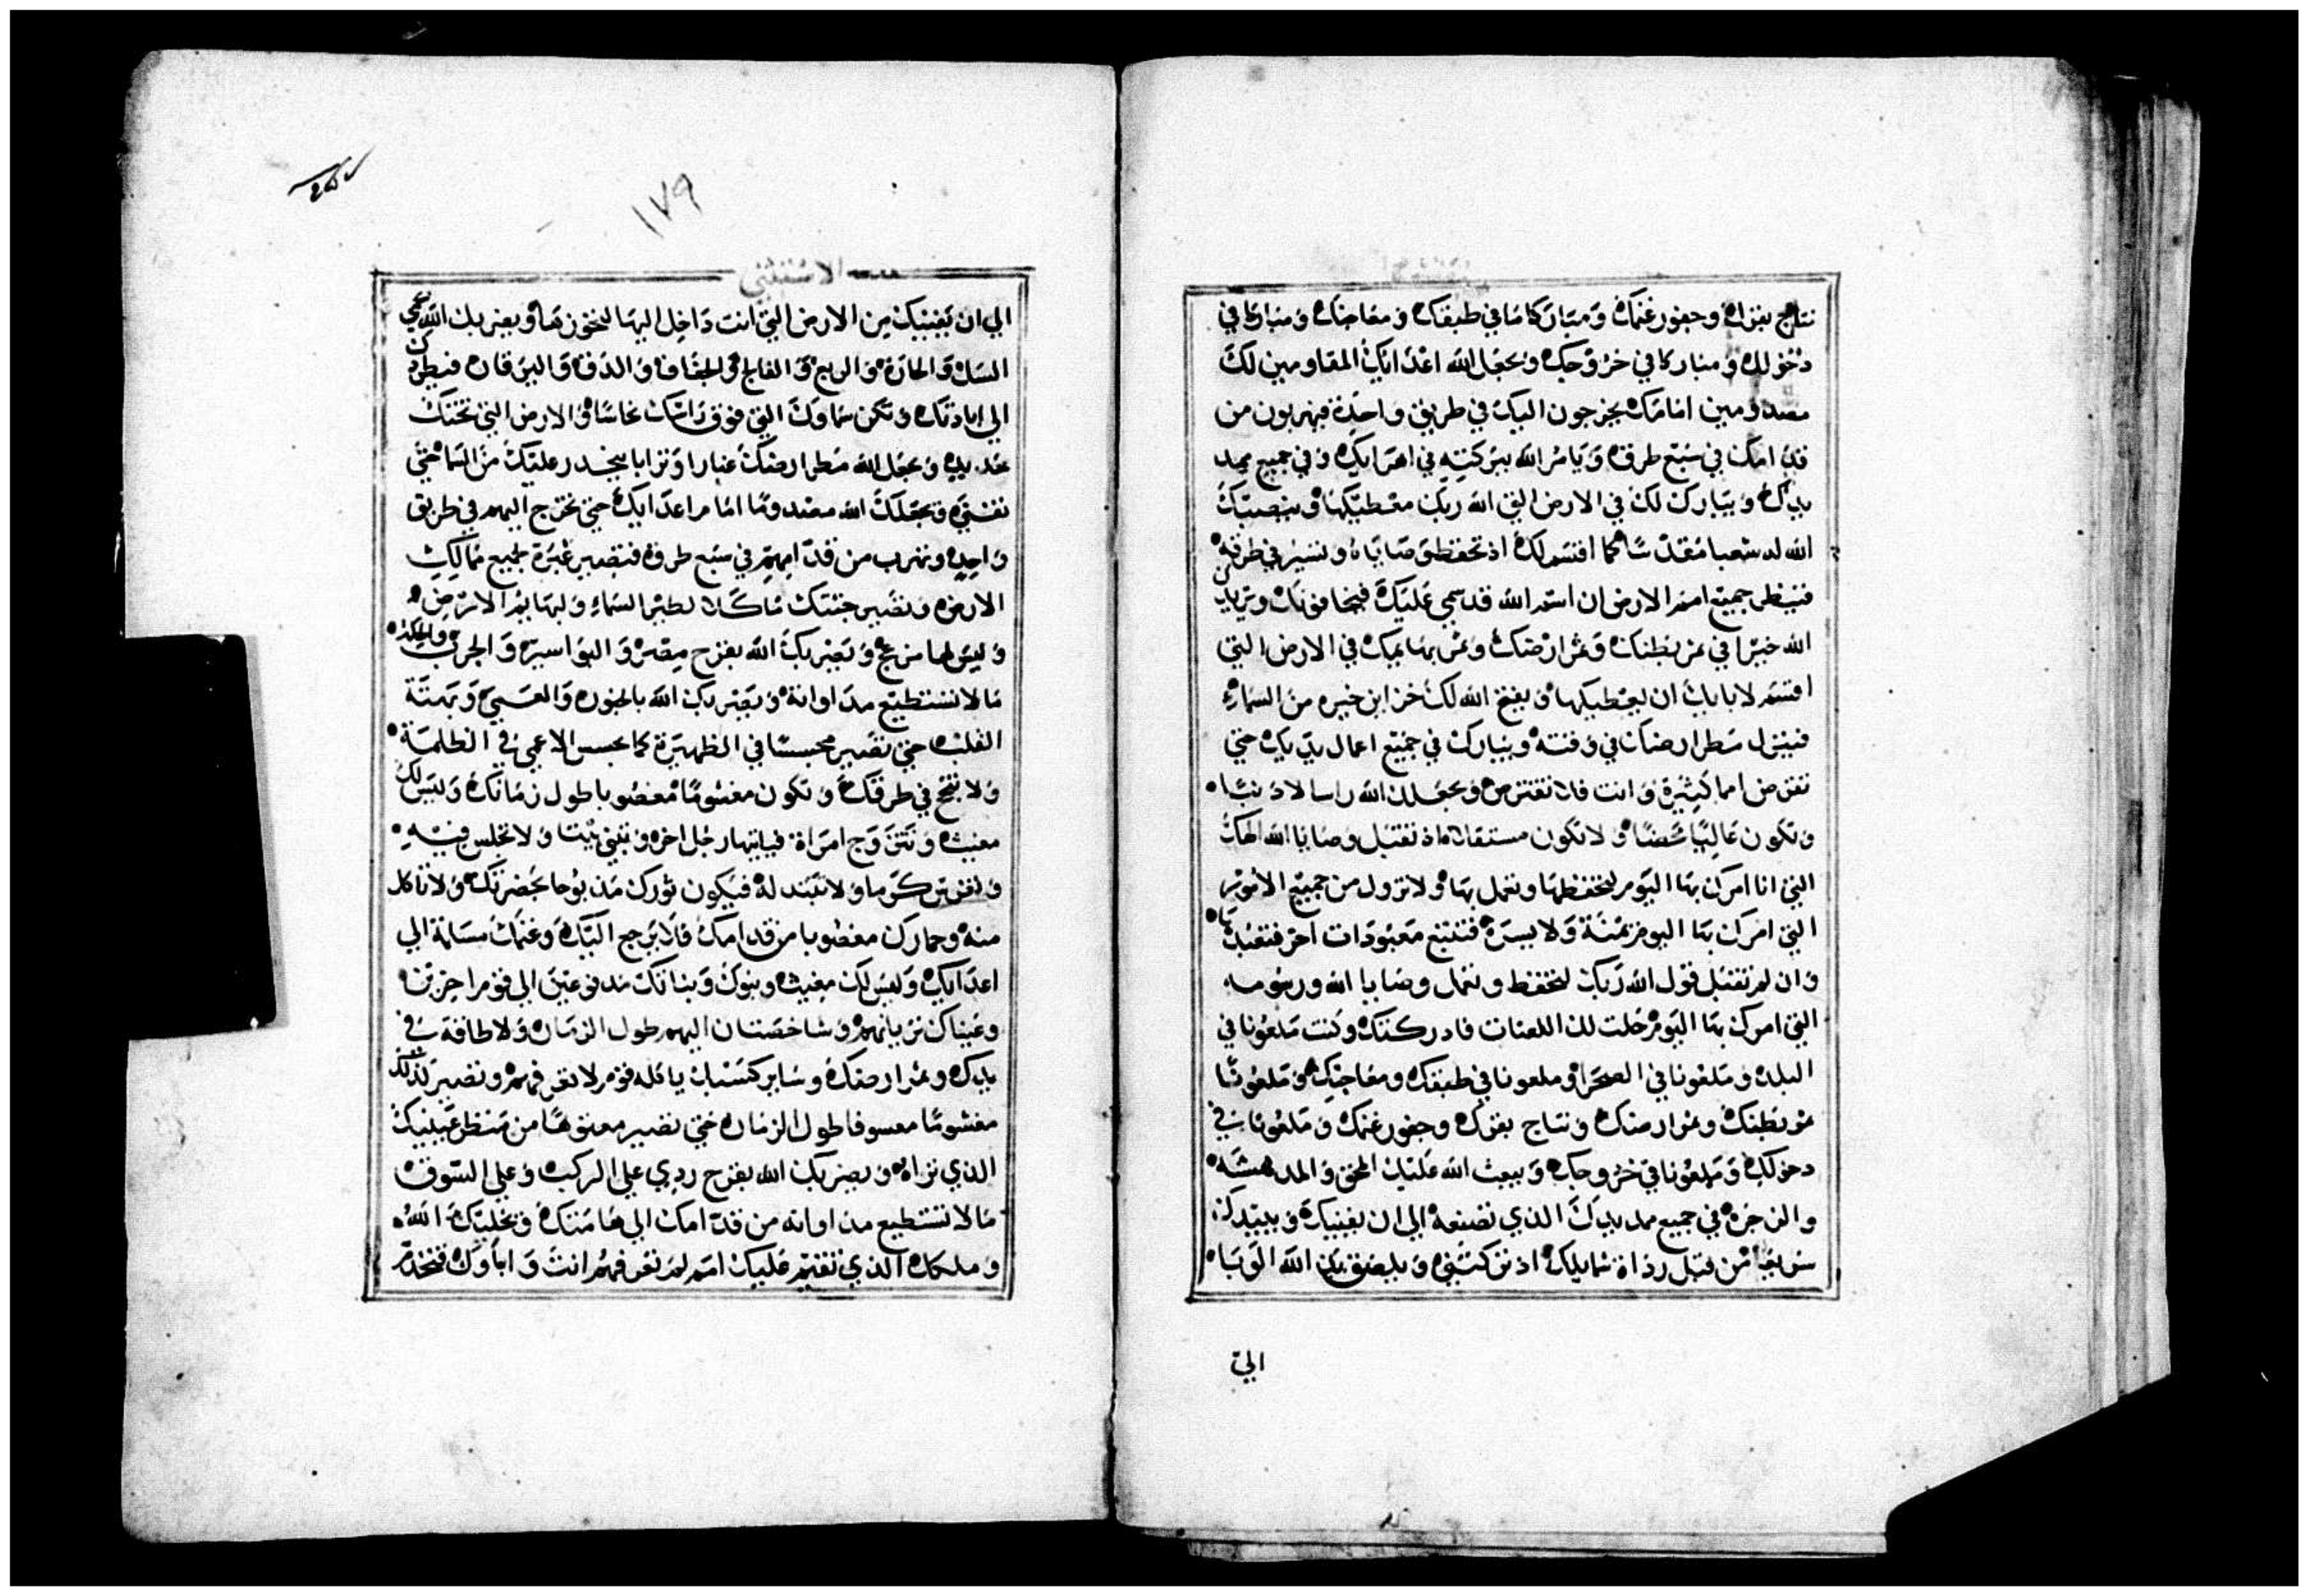 نتاج بقراك وحفور غنمك ومباركا ما في طبقك ومعاجنك ومباركا في
دخولك ومباركا في خروجك ويجعل الله اعداك المقاومين لك
مصدومين امامك يخرجون اليك في طريق واحدة فيهربون من
قدامك في سبع طرق ويامر الله ببركته في اهرايك وفي جميع ممد
يدك ويبارك لك في الارض التي الله ربك معطيكها وينصبك
الله له شعبا مقدسا كما اقسم لك اذ تحفظ وصاياه وتسير في طرقه
فينظر جميع امم الارض ان اسم الله قد سمي عليك فيخافونك ويزيدك
الله خيرا في ثمر بطنك وثمر ارضك وثمر بهايمك في الارض التي
اقسم لاباك ان يعطيكها ويفتح الله لك خزاين خيره من السماء
فينزل مطر ارضك في وقته ويبارك في جميع اعمال يديك حتى
تقرض امما كثيرة وانت فلا تقترض ويجعلك الله راسا لا ذنبا
وتكون عاليا محضا ولا تكون مستفلا اذ تقبل وصايا الله الهك
التي انا امرك بها اليوم لتحفظها وتعمل بها ولا تزول من جميع الامور
التي امرك بها اليوم يمنة ولا يسرة فتتبع معبودات اخر فتعبدها
وان لم تقبل قول الله ربك لتحفظ وتعمل وصايا الله ورسومه
التي امرك بها اليوم حلت لك اللعنات فادركتك وكنت ملعونا في
البلد وملعونا في الصحرا وملعونا في طبقك ومعاجنك وملعونا
ثمر بطنك وثمر ارضك ونتاج بقرك وحفور غنمك وملعونا في
دخولك وملعونا في خروجك ويبعث الله عليك المحق والمدهشة
والزجرة في جميع ممد يدك الذي تصنعه الى ان يفنيك ويبيدك
سريعا من قبل رذاة شمايلك اذ تركتني ويلصق بك الله الوبا
الي
١٧٩
الاستثني
الي ان يفنيك من الارض التي انت داخل اليها لتحوزها ويضربك الله في
السل والحارة والربع والفالج والجفاف والدفة واليرقان فيطردك
الي ابادتك وتكن سماوك التي فوق راسك نحاسا والارض التي تحتك
حديد ويجعل الله مطر ارضك غبارا وترابا ينحدر عليك من السما حتى
تفنى ويجعلك الله مصدوما امام اعدايك حتى تخرج اليهم في طريق
واحد وتهرب من قدامهم في سبع طرق فتصير عبرة لجميع ممالك
الارض وتصير جثتك ماكلا لطير السماء ولبهايم الارض
وليس لها مزعج ويضربك الله بقرح مصر والبواسير والجرب والحكة
ما لا تستطيع مداواته ويضربك الله بالجنون والعمى وبهتة
القلب حتى تصير محبسا في الظهيرة كما يحبس الاعمى في الظلمة
ولا تنجح في طرقك وتكون مغشوما مغصوبا طول زمانك وليس لك
مغيث وتتزوج امراة فياتيها رجل اخر وتبني بيتا ولا تجلس فيه
وتغرس كرما ولا تبتدله فيكون ثورك مذبوحا بحضرتك ولا تاكل
منه وحمارك مغصوبا من قدامك فلا يرجع اليك وغنمك مسلمة الي
اعدايك وليس لك مغيث وبنوك وبناتك مدفوعين الي قوم اخرين
وعيناك تريانهم وشاخصتان اليهم طول الزمان ولا طاقة في
يدك وثمر ارضك وساير كسبك ياكله قوم لا تعرفهم وتصير لذلك
مغشوما معسوفا طول الزمان حتى تصير معتوها من منظر عينيك
الذي تراه ويضربك الله بقرح ردي على الركب وعلى السوق
ما لا تستطيع مداواته من قدامك الي هامتك ويجليك الله
وملكك الذي تقيم عليك امم لم تعرفهم انت واباوك فتخدم